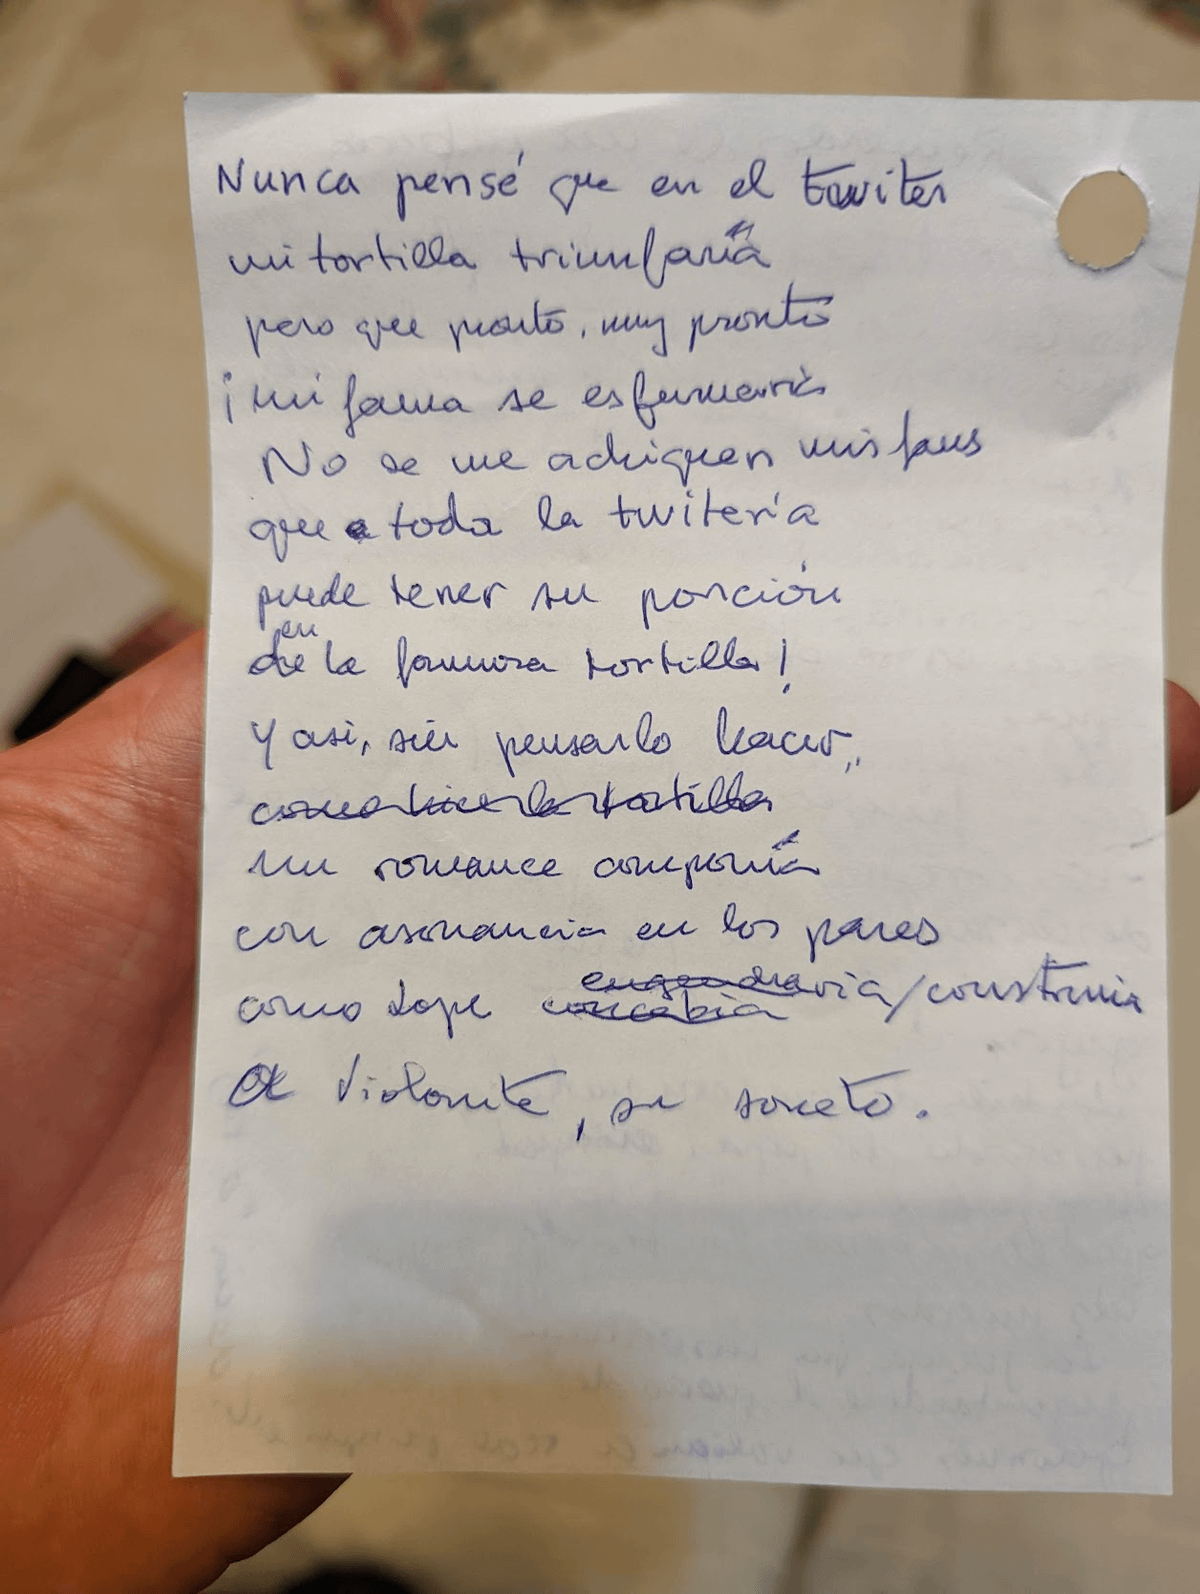 Nunca pensé que en el twiter
mi tortilla triunfaría
pero que pronto, muy pronto
¡mi fama se esfumaría
No se me achiquen mis fans
que a toda la twitería
puede tener su porción
de en la famosa tortilla!
Y así, sin pensarlo hacer,,
como hice la tortilla
un romance componía
con asonancia en los pares
como Lope concebía engendraría/construía
a Violante, su soneto.